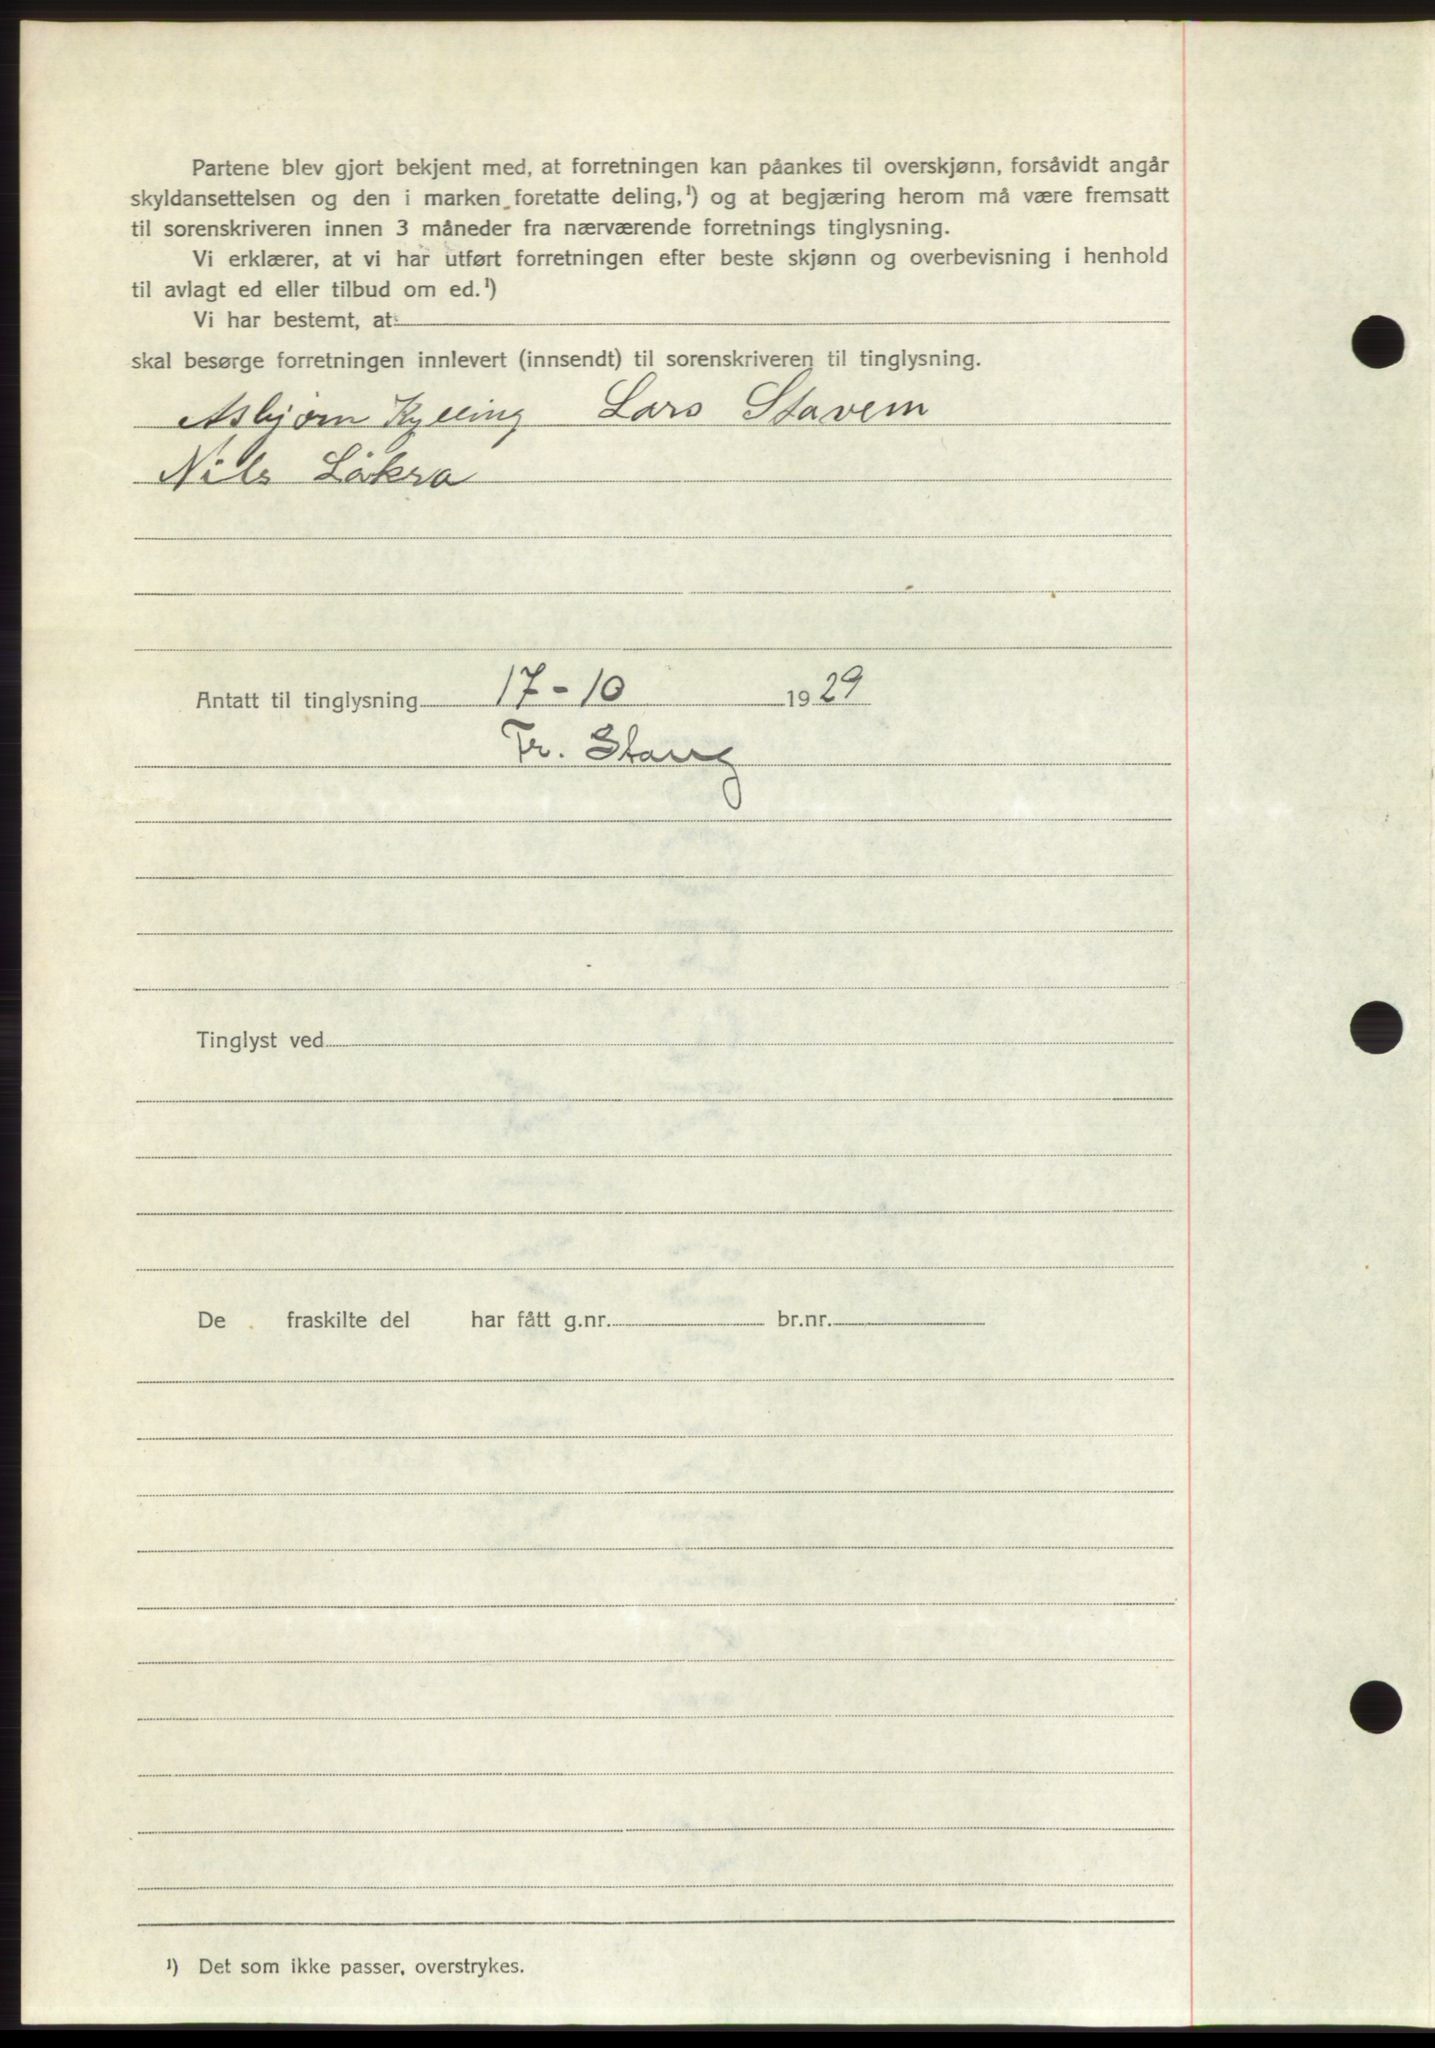 Partene blev gjort bekjent med, at forretningen kan påankes til overskjønn, forsåvidt angår
skyldansettelsen og den i marken foretatte deling,¹) og at begjæring herom må være fremsatt
til sorenskriveren innen 3 måneder fra nærværende forretnings tinglysning.
Vi erklærer, at vi har utført forretningen efter beste skjønn og overbevisning i henhold
til avlagt ed eller tilbud om ed.¹)
Vi har bestemt, at
skal besørge forretningen innlevert (innsendt) til sorenskriveren til tinglysning.
Asbjørn Kylling Lars Stavem
Nils Låkra
Antatt til tinglysning 17-10 1929
Fr. Stang
Tinglyst ved
De fraskilte del har fått g.nr. br.nr.
¹) Det som ikke passer, overstrykes.